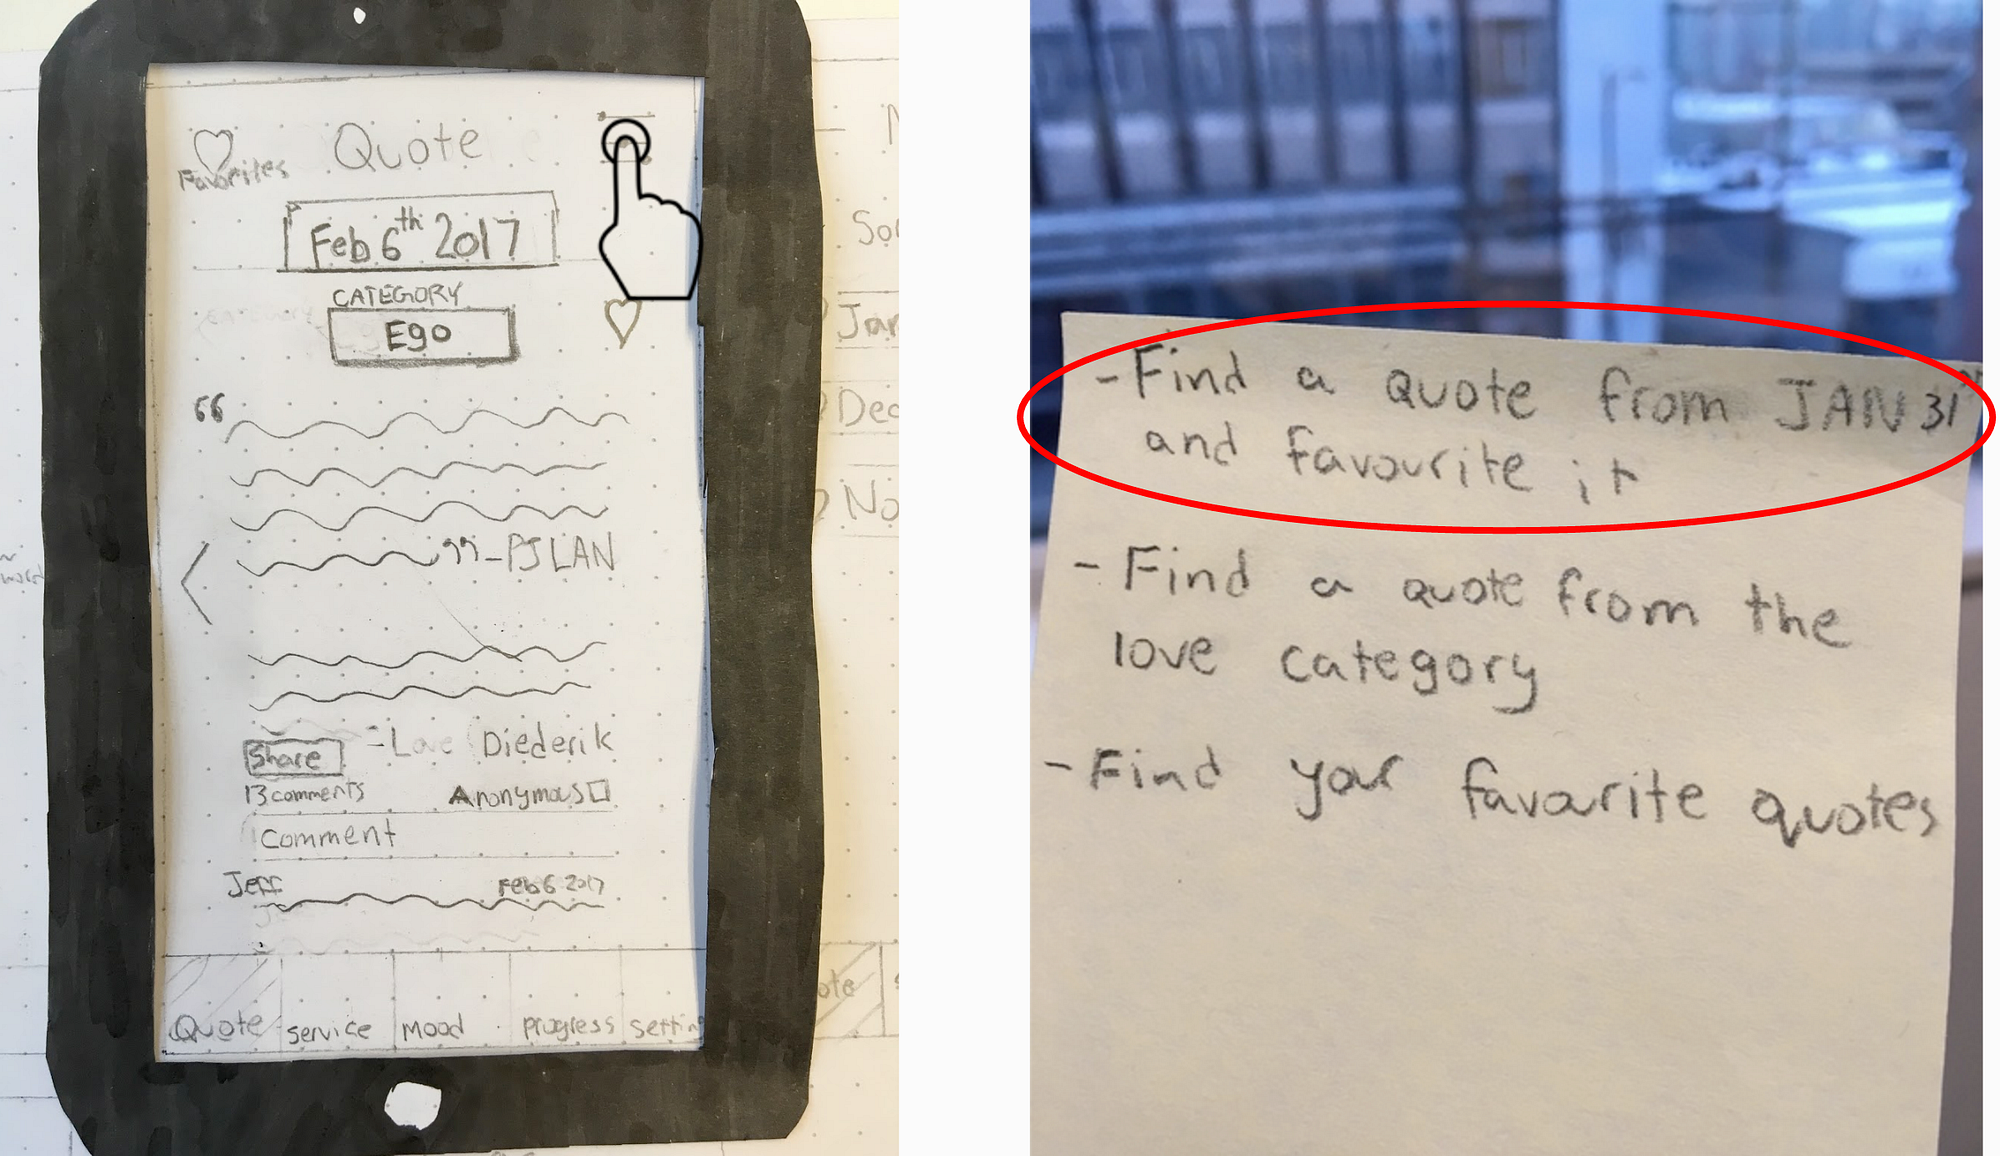 Favorites
Quote
Feb 6th 2017
CATEGORY
Ego
“
” -PJ LAN
-Love Diederik
Share
13 comments
Anonymous
Comment
Jeff
Feb 6 2017
Quote
service
Mood
progress
settin
Sor
Jar
Dec
No
ote
- Find a quote from JAN 31
and favourite it
- Find a quote from the
love category
- Find your favarite quotes